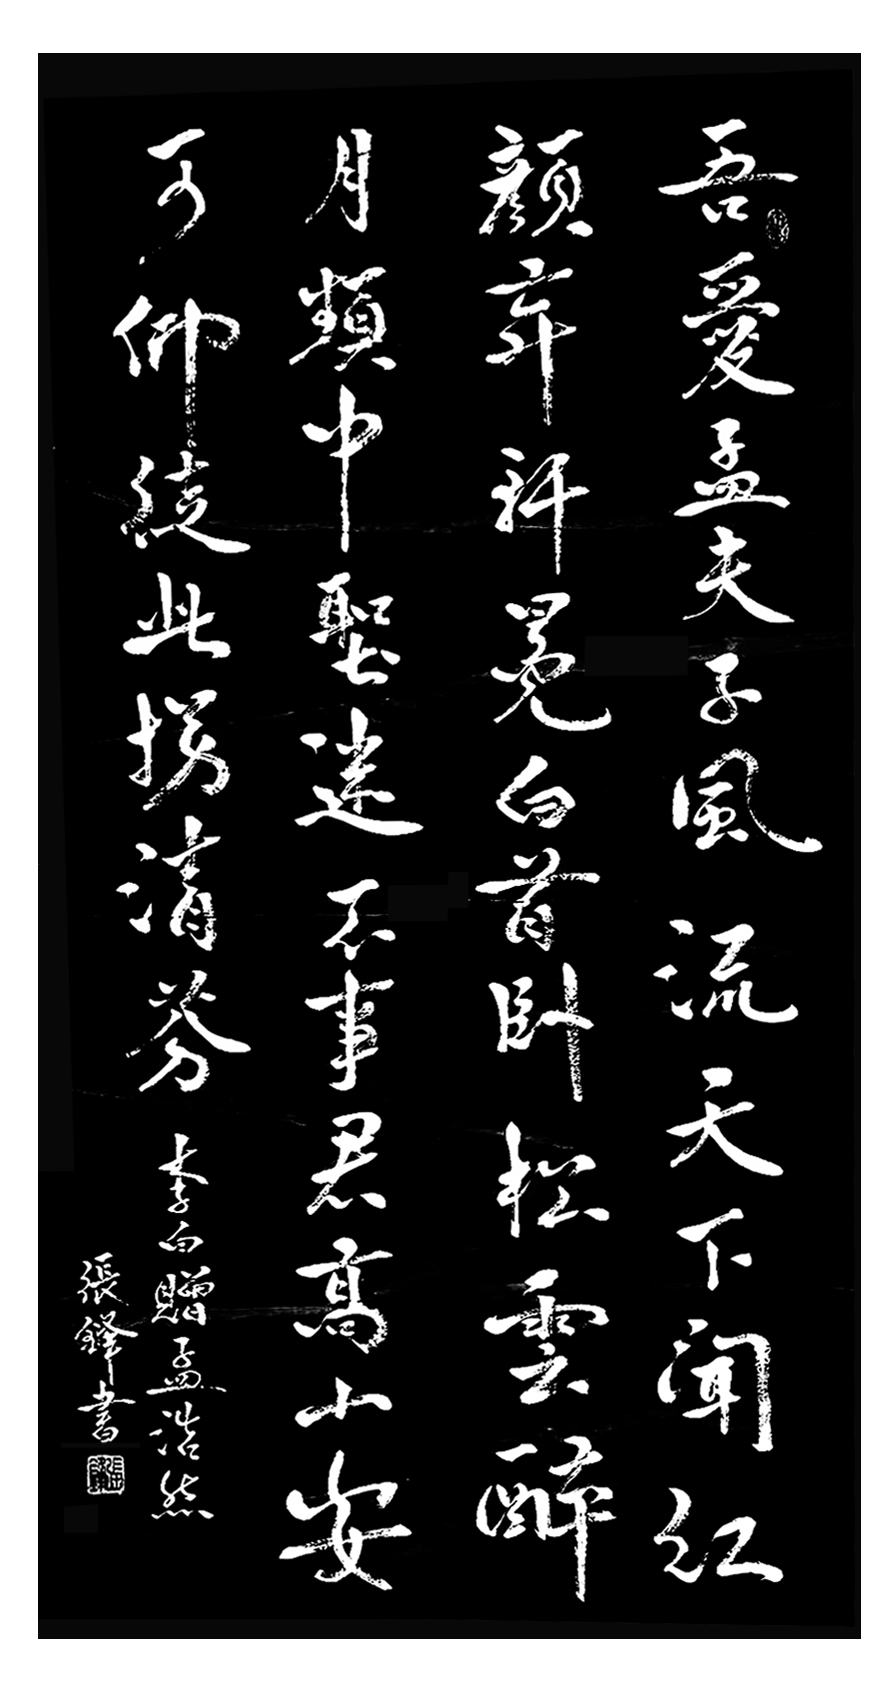 吾愛孟夫子風流天下聞紅
顏弃軒冕白首臥松雲醉
月頻中聖迷不事君高山安
可仰徒此揖清芬 李白贈孟浩然
張鋒書